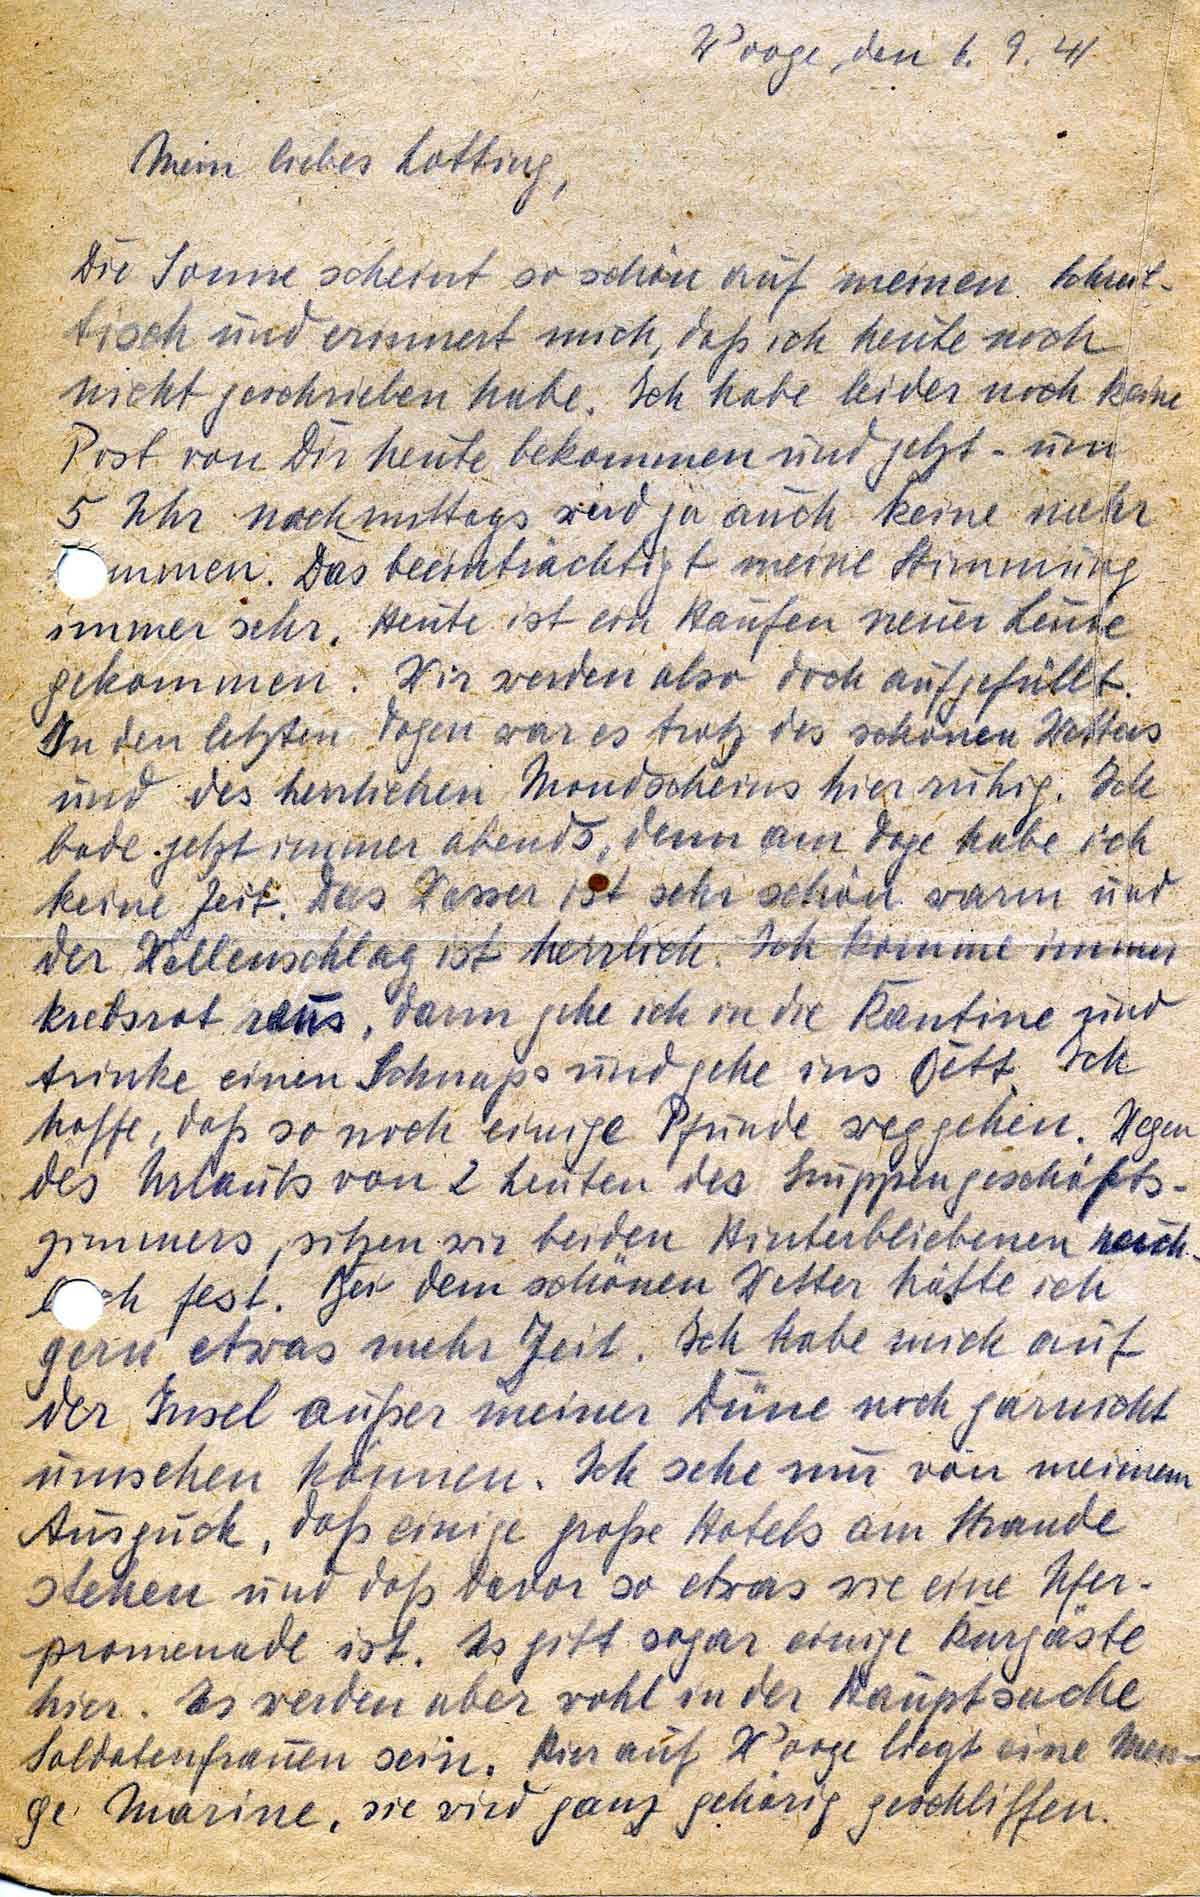 W'ooge, den 6. 9. 41
Mein liebes Lotting,
Die Sonne scheint so schön auf meinen Schreib-
tisch und erinnert mich, daß ich heute noch
nicht geschrieben habe. Ich habe leider noch keine
Post von Dir heute bekommen und jetzt - um
5 Uhr nachmittags wird ja auch keine mehr
ommen. Das beeinträchtigt meine Stimmung
immer sehr. Heute ist ein Haufen neuer Leute
gekommen. Wir werden also doch aufgefüllt.
In den letzten Tagen war es trotz des schönen Wetters
und des herrlichen Mondscheins hier ruhig. Ich
bade jetzt immer abends, denn am Tage habe ich
keine Zeit. Das Wasser ist sehr schön warm und
der Wellenschlag ist herrlich. Ich komme immer
krebsrot raus, dann gehe ich in die Kantine und
trinke einen Schnaps und gehe ins Bett. Ich
hoffe, daß so noch einige Pfunde weggehen. Wegen
des Urlaubs von 2 Leuten des Truppengeschäfts-
zimmers, sitzen wir beiden Hinterbliebenen
fest. Bei dem schönen Wetter hätte ich
gern etwas mehr Zeit. Ich habe mich auf
der Insel außer meiner Düne noch garnicht
umsehen können. Ich sehe nur von meinem
Ausguck, daß einige große Hotels am Strande
stehen und daß davor so etwas wie eine Ufer-
promenade ist. Es gibt sogar einige Kurgäste
hier. Es werden aber wohl in der Hauptsache
Soldatenfrauen sein. Hier auf W'ooge liegt eine Men-
ge Marine, sie wird ganz gehörig geschliffen.